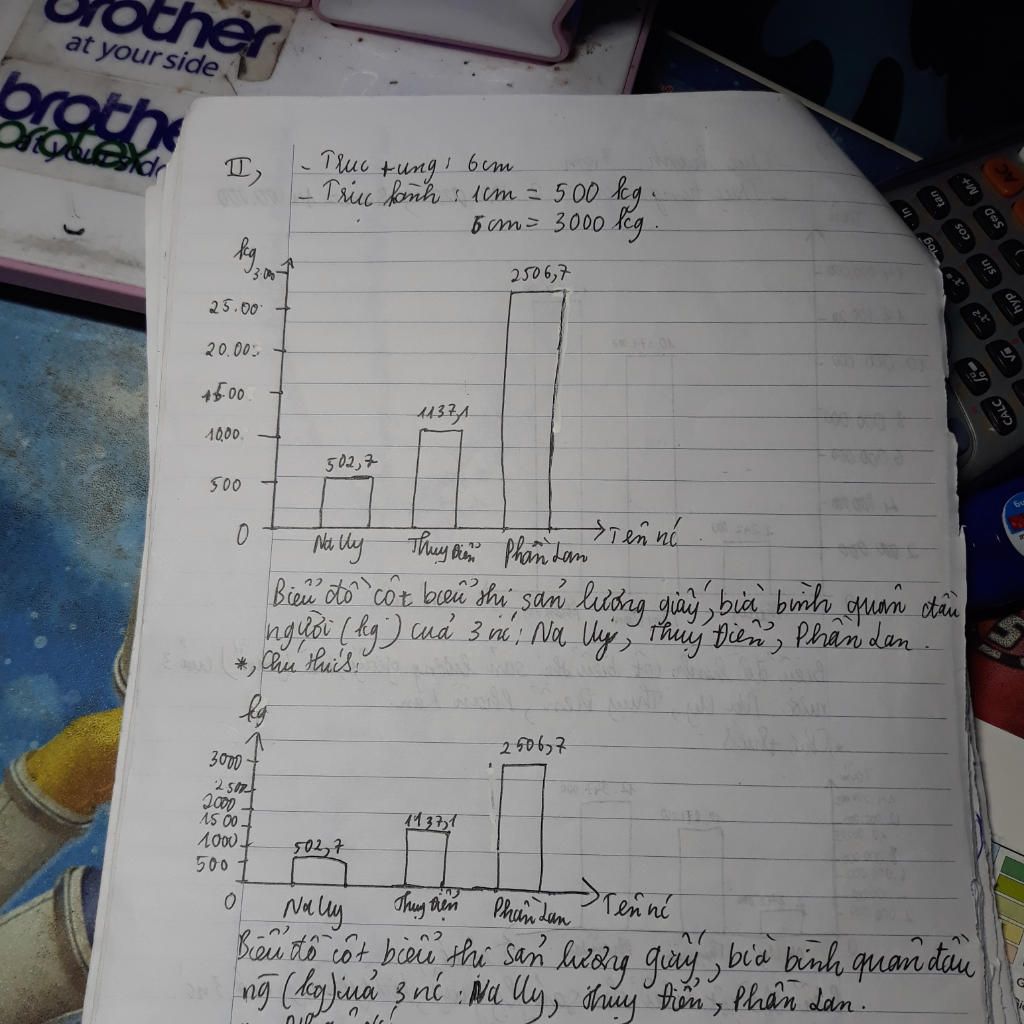 brother
at your side
brothe
protex
at your side
II,
- Trục tung: 6cm
- Trục hành: 1cm = 500 kg.
6cm = 3000 kg.
kg
3.000
2506,7
25.00
20.00
15.00
1137,1
1000
502,7
500
0
Na Uy Thụy Điển Phần Lan Tên nć
Biểu đồ cột biểu thị sản lượng giấy, bìa bình quân đầu
người (kg) của 3 nć: Na Uy, Thụy Điển, Phần Lan.
*, Chú thích:
kg
2506,7
3000
2500
2000
1500
1137,1
1000
502,7
500
0
Na Uy Thụy Điển Phần Lan Tên nć
Biểu đồ cột biểu thị sản lượng giấy, bìa bình quân đầu
ng (kg) của 3 nć: Na Uy, Thụy Điển, Phần Lan.
AC
M+
S⇔D
tan
cos
sin
hyp
ln
log
x²
CALC